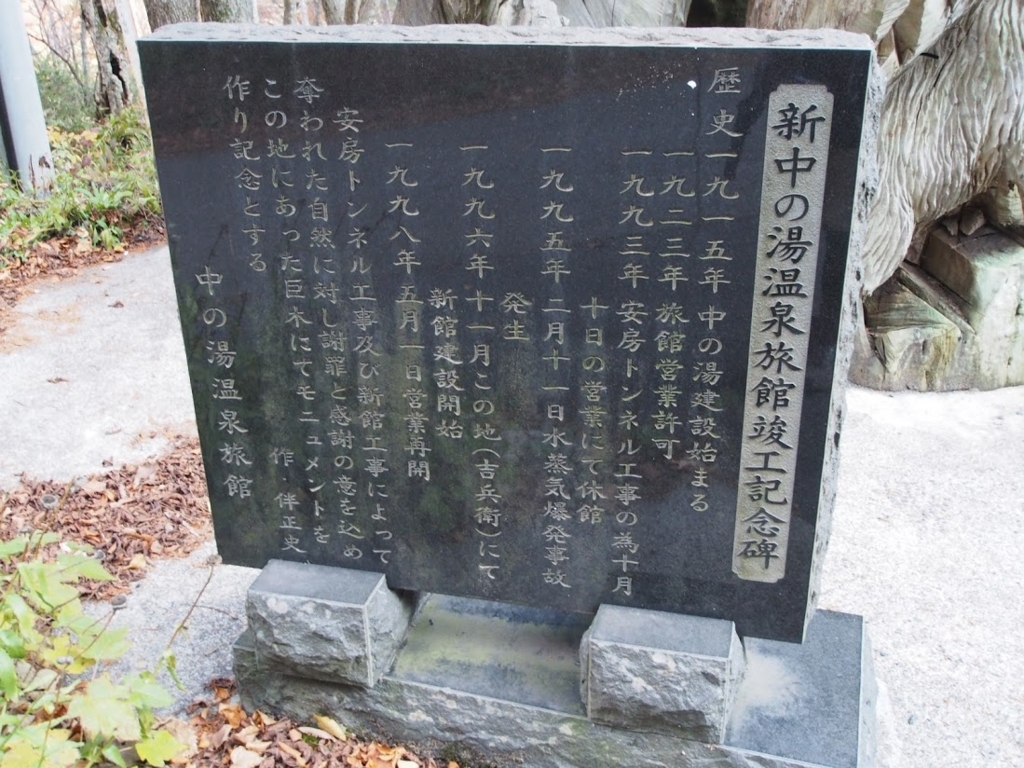 新中の湯温泉旅館竣工記念碑
歴史一九一五年中の湯建設始まる
一九二三年旅館営業許可
一九九三年安房トンネル工事の為十月
十日の営業にて休館
一九九五年二月十一日水蒸気爆発事故
発生
一九九六年十一月この地(吉兵衛)にて
新館建設開始
一九九八年五月一日営業再開
安房トンネル工事及び新館工事によって
奪われた自然に対し謝罪と感謝の意を込め
この地にあった巨木にてモニュメントを
作り記念とする
作・伴正史
中の湯温泉旅館